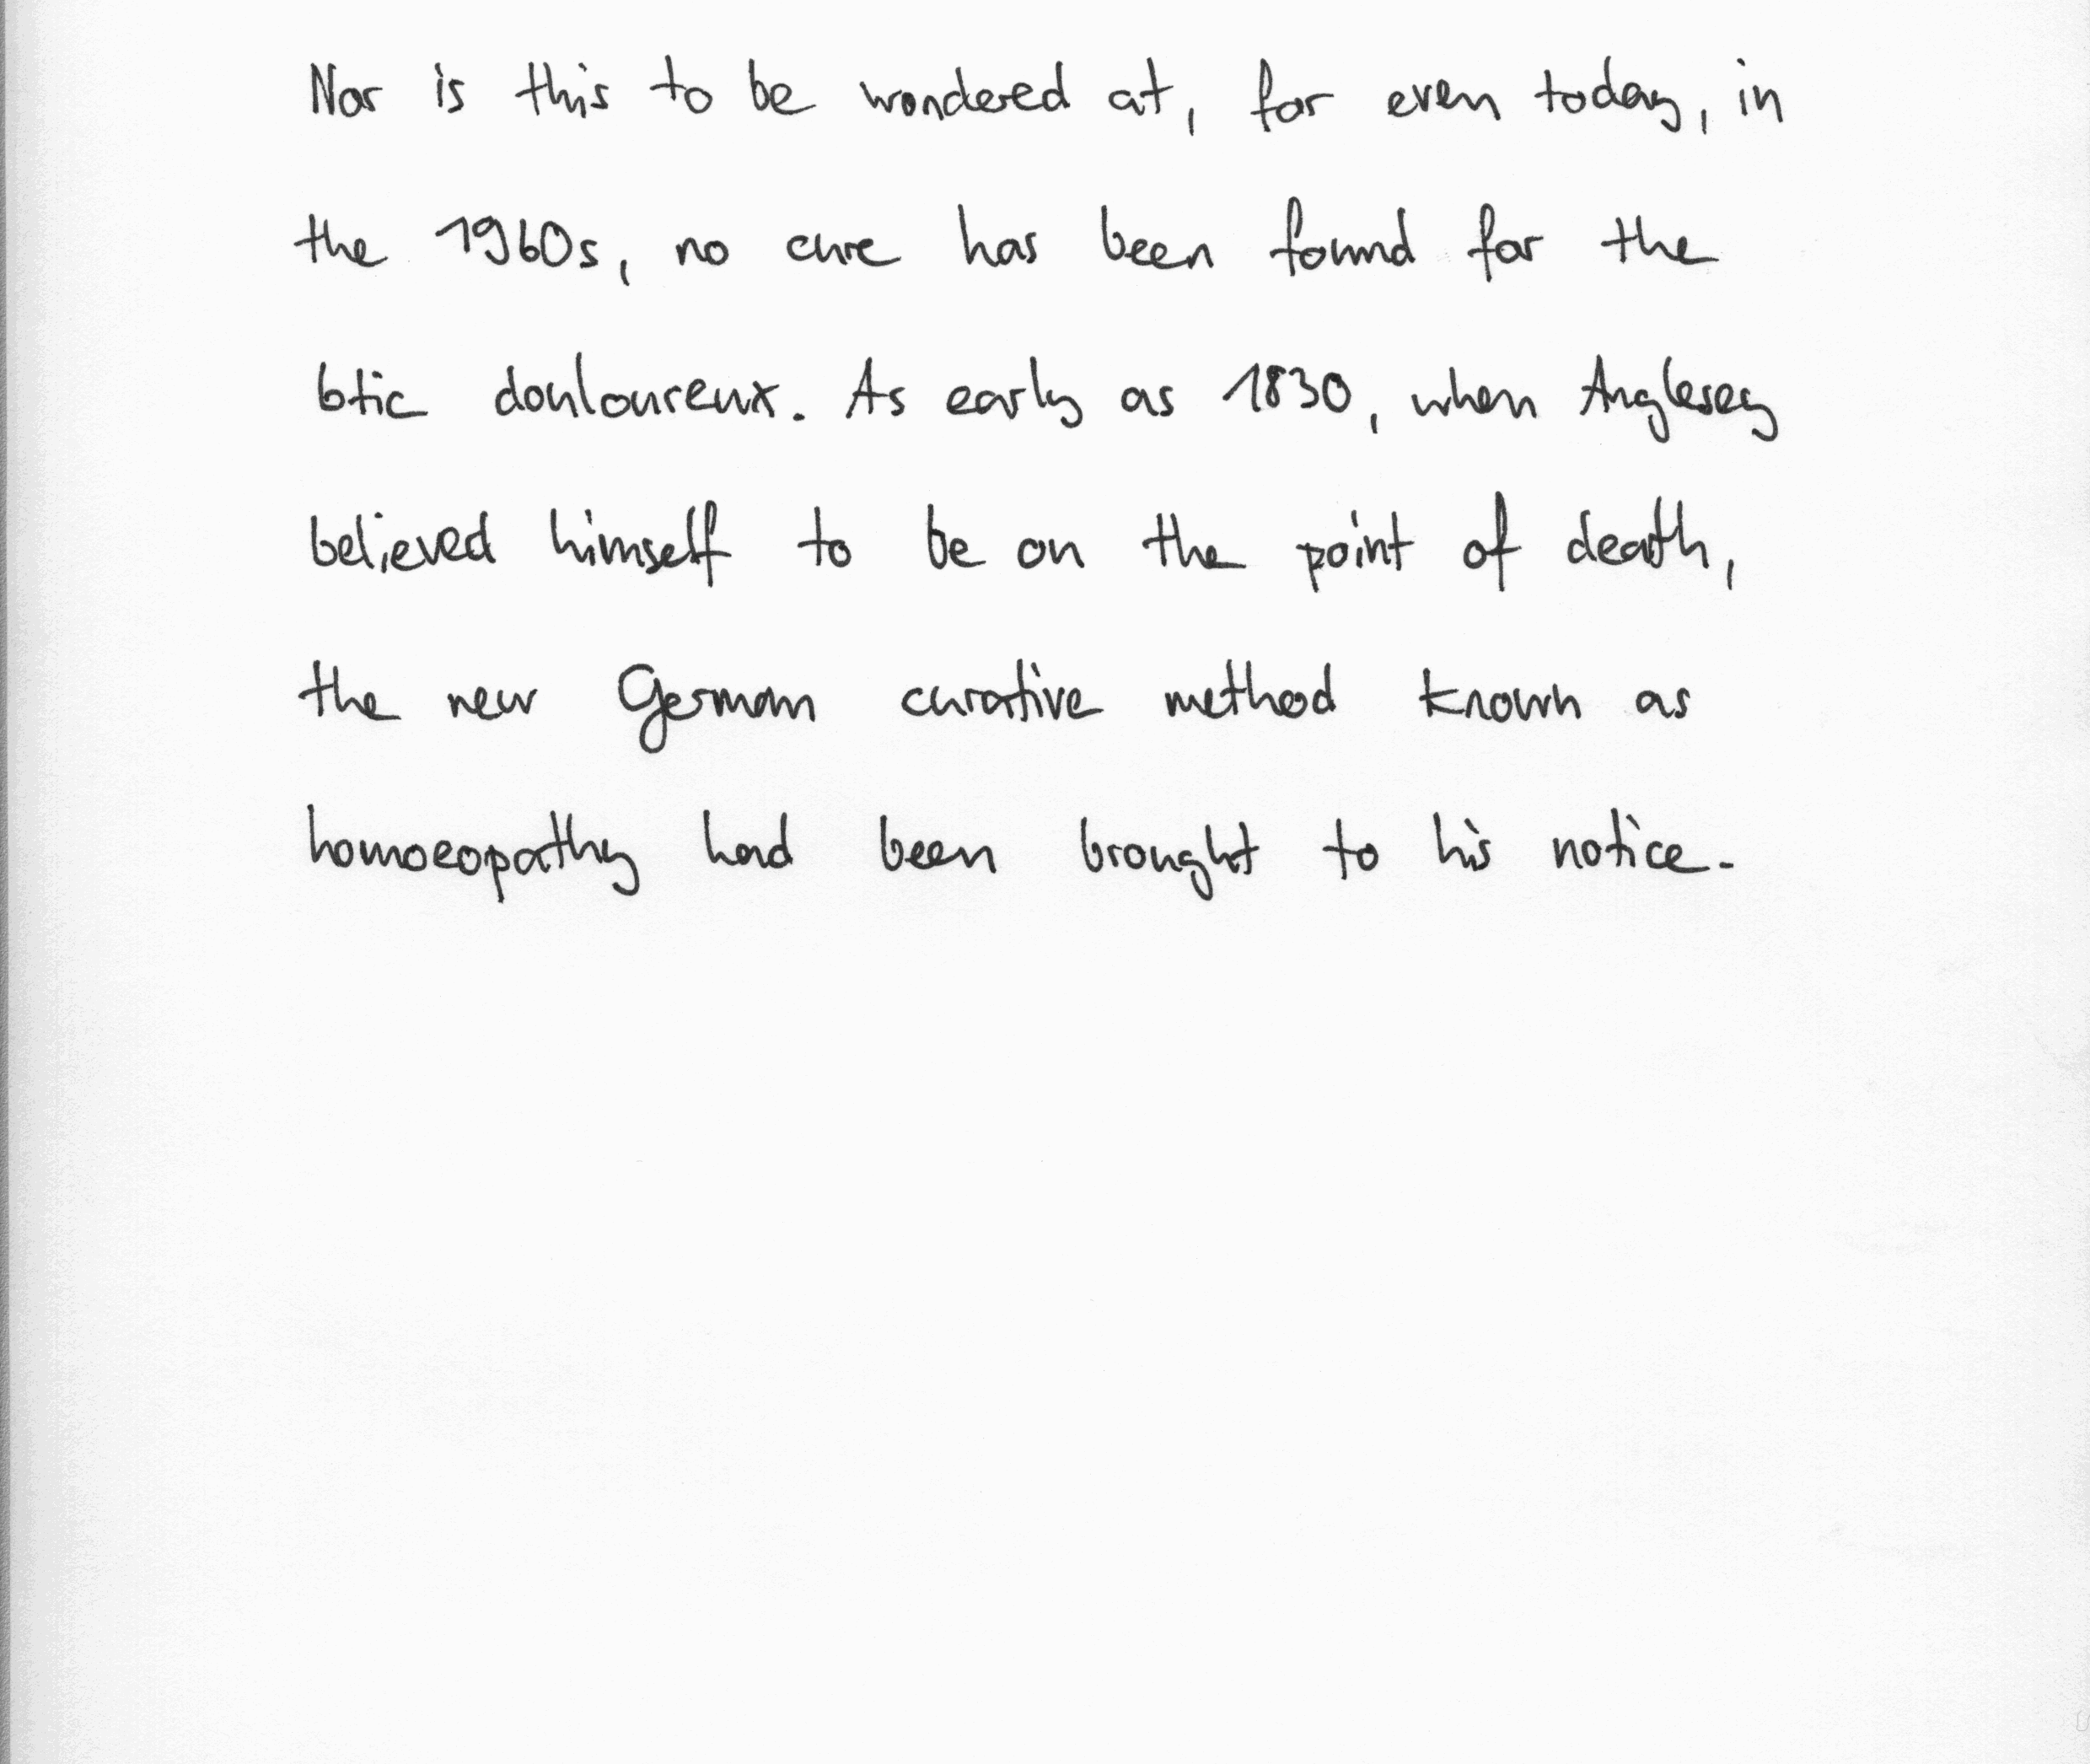 Nor is this to be wondered at, for even today, in
the 1960s, no cure has been found for the
6tic douloureux. As early as 1830, when Anglesey
believed himself to be on the point of death,
the new German curative method known as
homoeopathy had been brought to his notice.